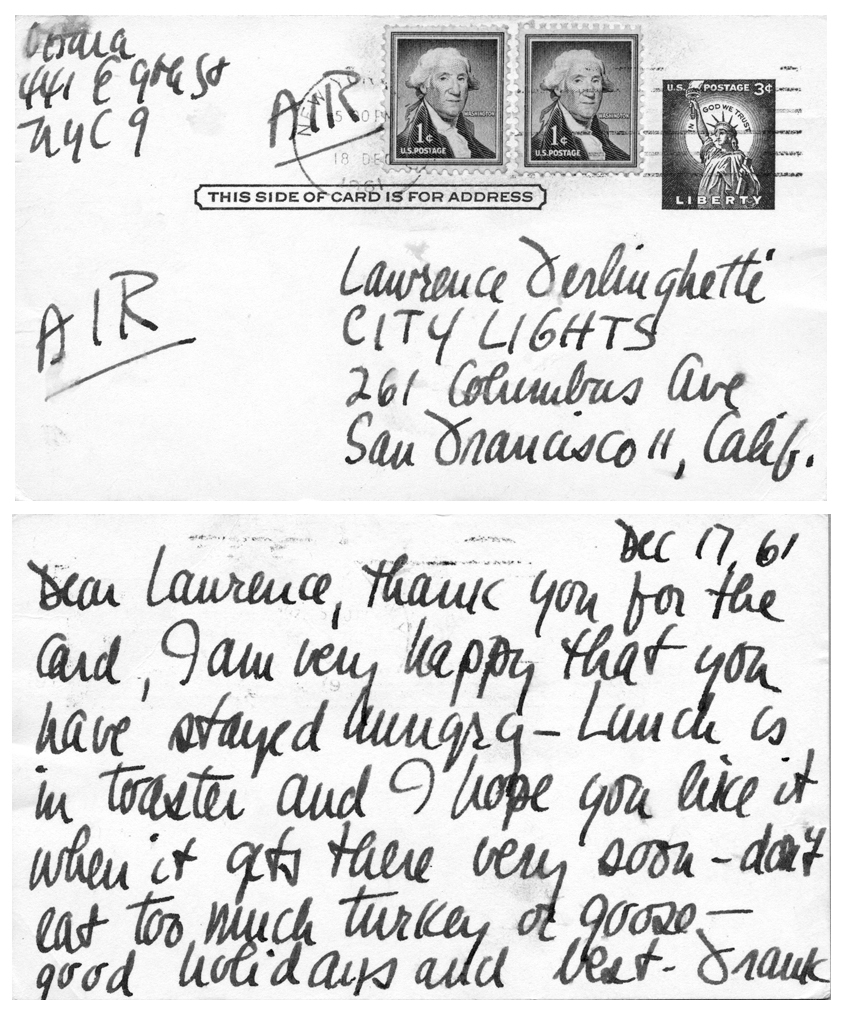 OHara
441 E 9th St
NYC 9
AIR
NEW
5 30 PM
18 DEC
1961
1¢
WASHINGTON
U.S. POSTAGE
1¢
WASHINGTON
U.S. POSTAGE
U.S. POSTAGE 3¢
IN GOD WE TRUST
LIBERTY
THIS SIDE OF CARD IS FOR ADDRESS
AIR
Lawrence Ferlinghetti
CITY LIGHTS
261 Columbus Ave
San Francisco 11, Calif.
Dec 17, 61
Dear Lawrence, thank you for the
card, I am very happy that you
have stayed hungry – Lunch is
in toaster and I hope you like it
when it gets there very soon – don't
eat too much turkey or goose –
good holidays and best - Frank